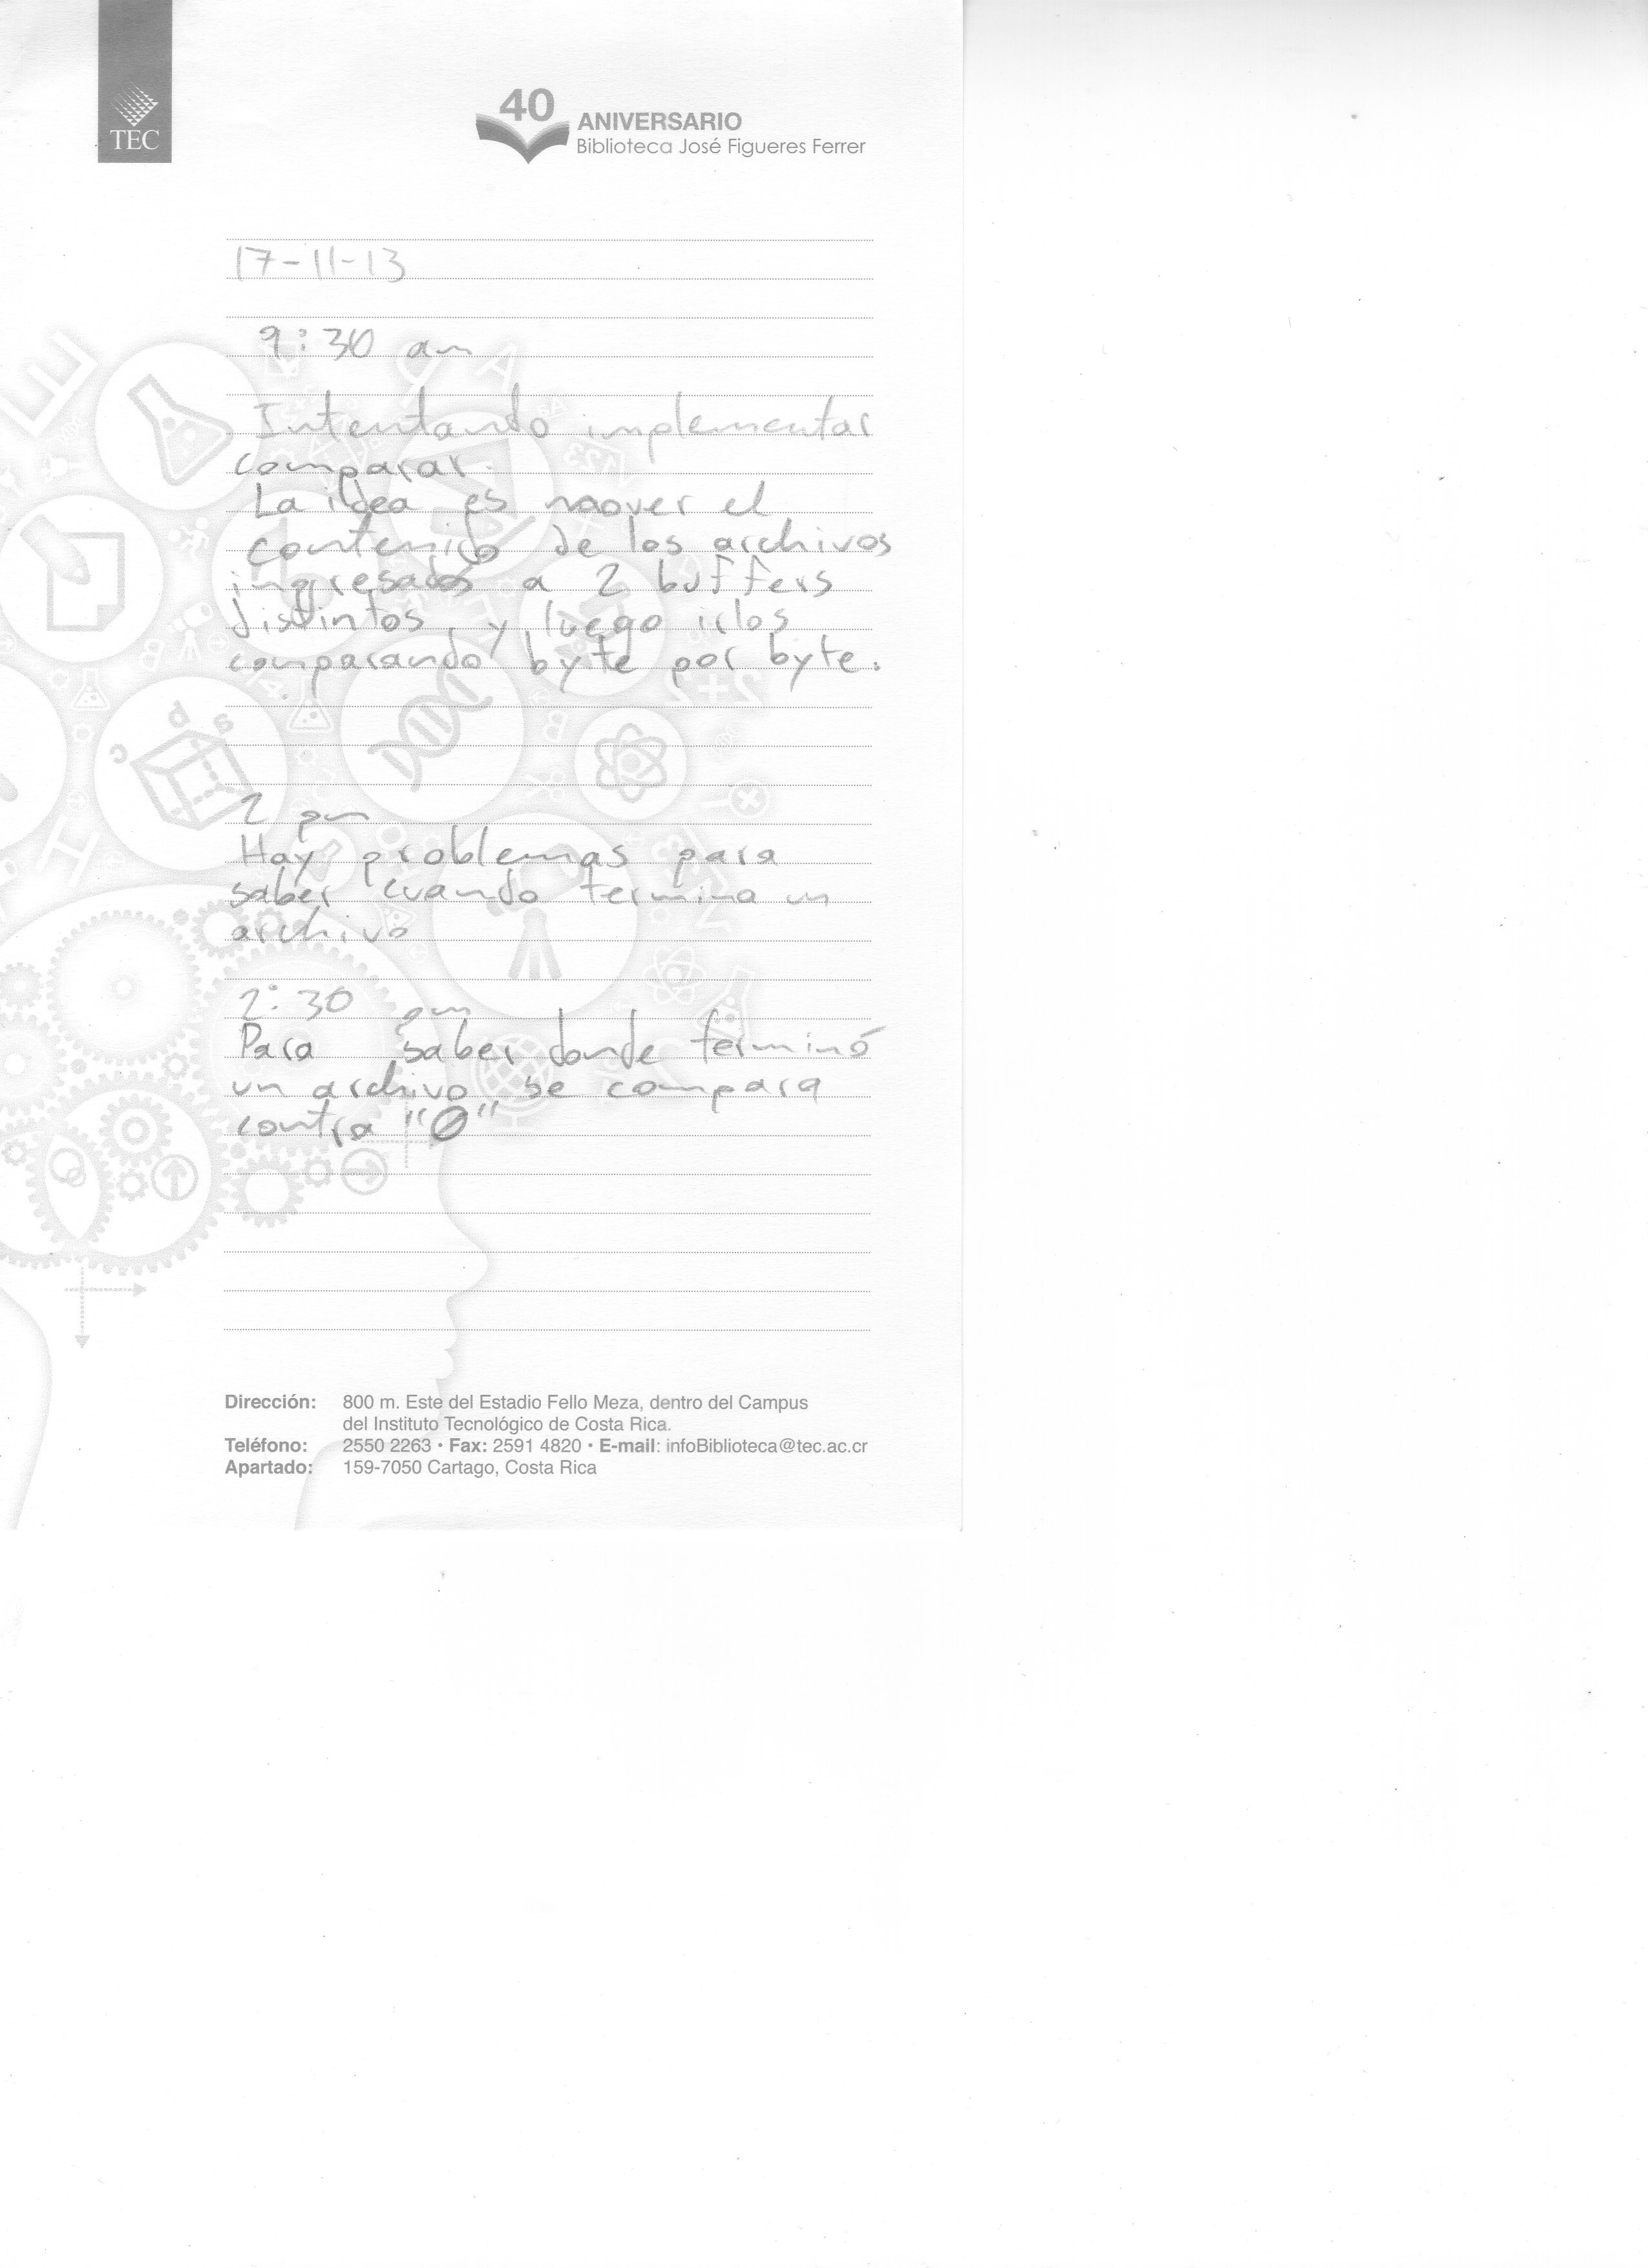 TEC
40
ANIVERSARIO
Biblioteca José Figueres Ferrer
17-11-13
9:30 am
Intentando implementar
comparar.
La idea es mover el
contenido de los archivos
ingresados a 2 buffers
distintos, y luego irlos
comparando byte por byte.
2 pm
Hay problemas para
saber cuando termina un
archivo
2:30 pm
Para saber donde terminó
un archivo se compara
contra "0"
Dirección: 800 m. Este del Estadio Fello Meza, dentro del Campus
del Instituto Tecnológico de Costa Rica.
Teléfono: 2550 2263 • Fax: 2591 4820 • E-mail: infoBiblioteca@tec.ac.cr
Apartado: 159-7050 Cartago, Costa Rica